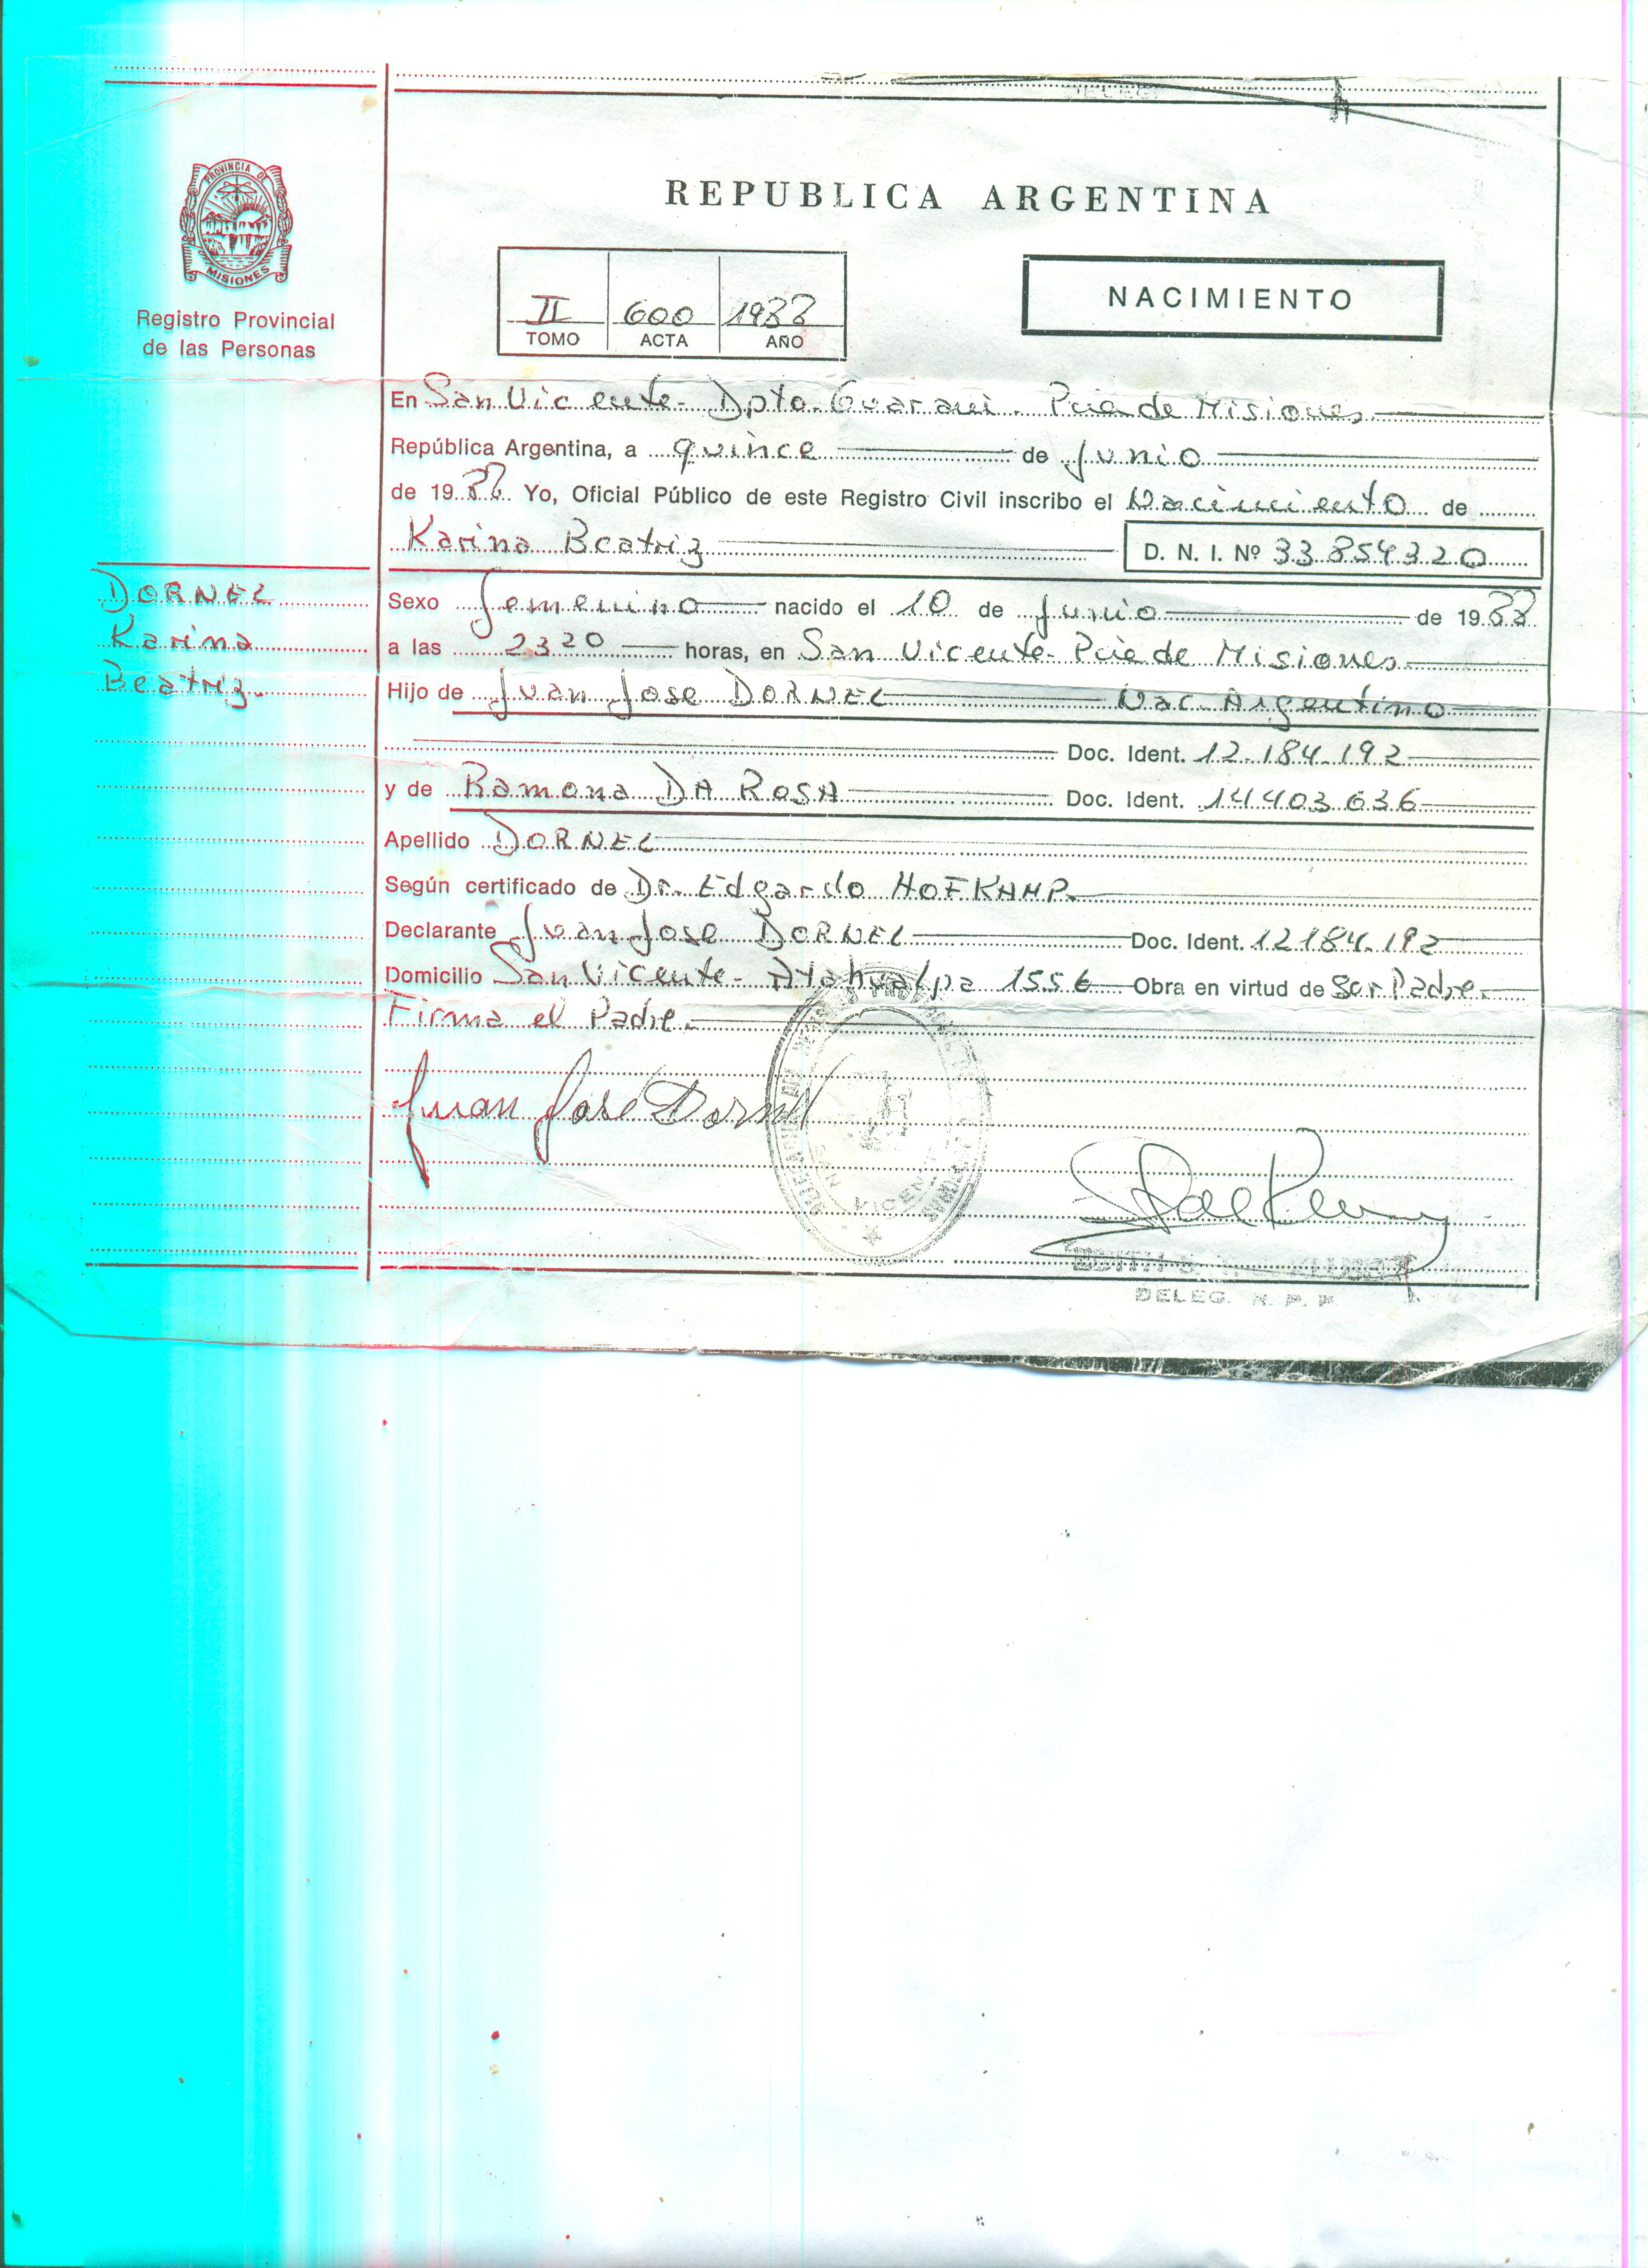 PROVINCIA DE
MISIONES
Registro Provincial
de las Personas
REPUBLICA ARGENTINA
II 600 1988
TOMO ACTA AÑO
NACIMIENTO
En San Vicente - Dpto. Guarani - Pcia de Misiones
República Argentina, a quince de Junio
de 1988 Yo, Oficial Público de este Registro Civil inscribo el Nacimiento de
Karina Beatriz D. N. I. Nº 33.854320
DORNEL
Karina
Beatriz.
Sexo femenino nacido el 10 de Junio de 1988
a las 2320 horas, en San Vicente - Pcia de Misiones
Hijo de Juan Jose DORNEL Nac. Argentino
Doc. Ident. 12.184.192
y de Ramona DA ROSA Doc. Ident. 14403.636
Apellido DORNEL
Según certificado de Dr. Edgardo HOFKAMP.
Declarante Juan Jose DORNEL Doc. Ident. 12184.192
Domicilio San Vicente - Atahualpa 1556 Obra en virtud de Ser Padre.
Firma el Padre.
Juan José Dornel
SAN VICENTE
DELEG. R. P. P.